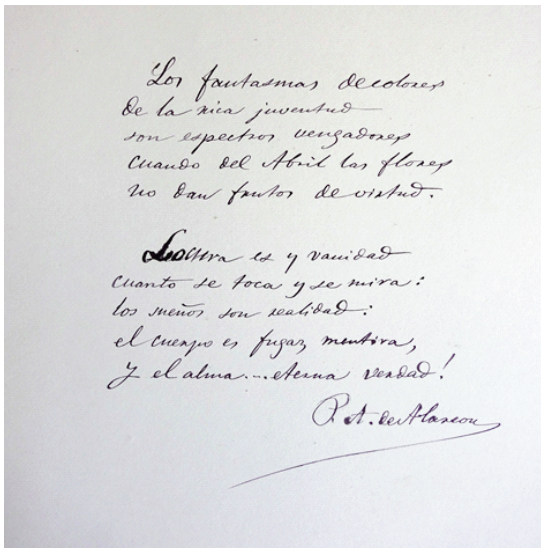 Los fantasmas de colores
de la rica juventud
son espectros vengadores
cuando del Abril las flores
no dan frutos de virtud.
Locura es y vanidad
cuanto se toca y se mira:
los sueños son realidad:
el cuerpo es fugaz mentira,
Y el alma... eterna verdad!
P. A. de Alarcon